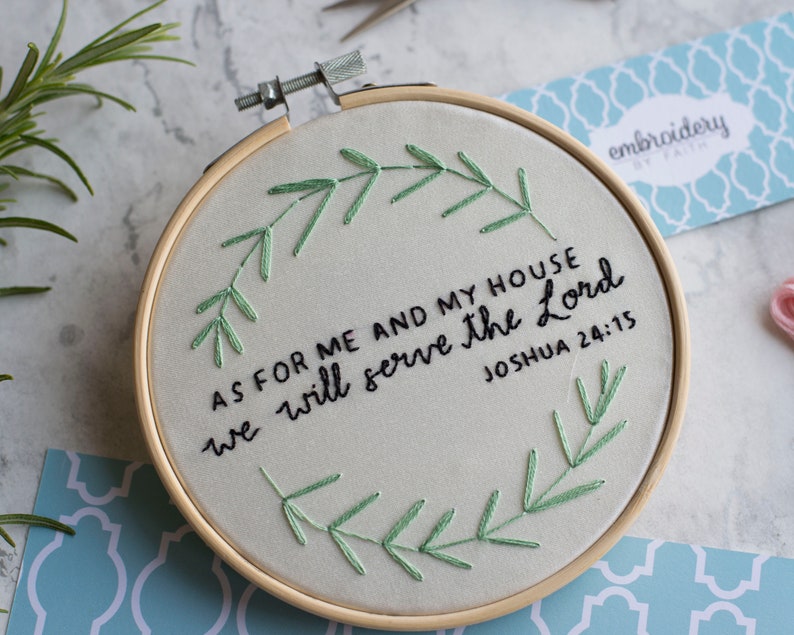 AS FOR ME AND MY HOUSE
we will serve the Lord
JOSHUA 24:15
embroidery
BY FAITH